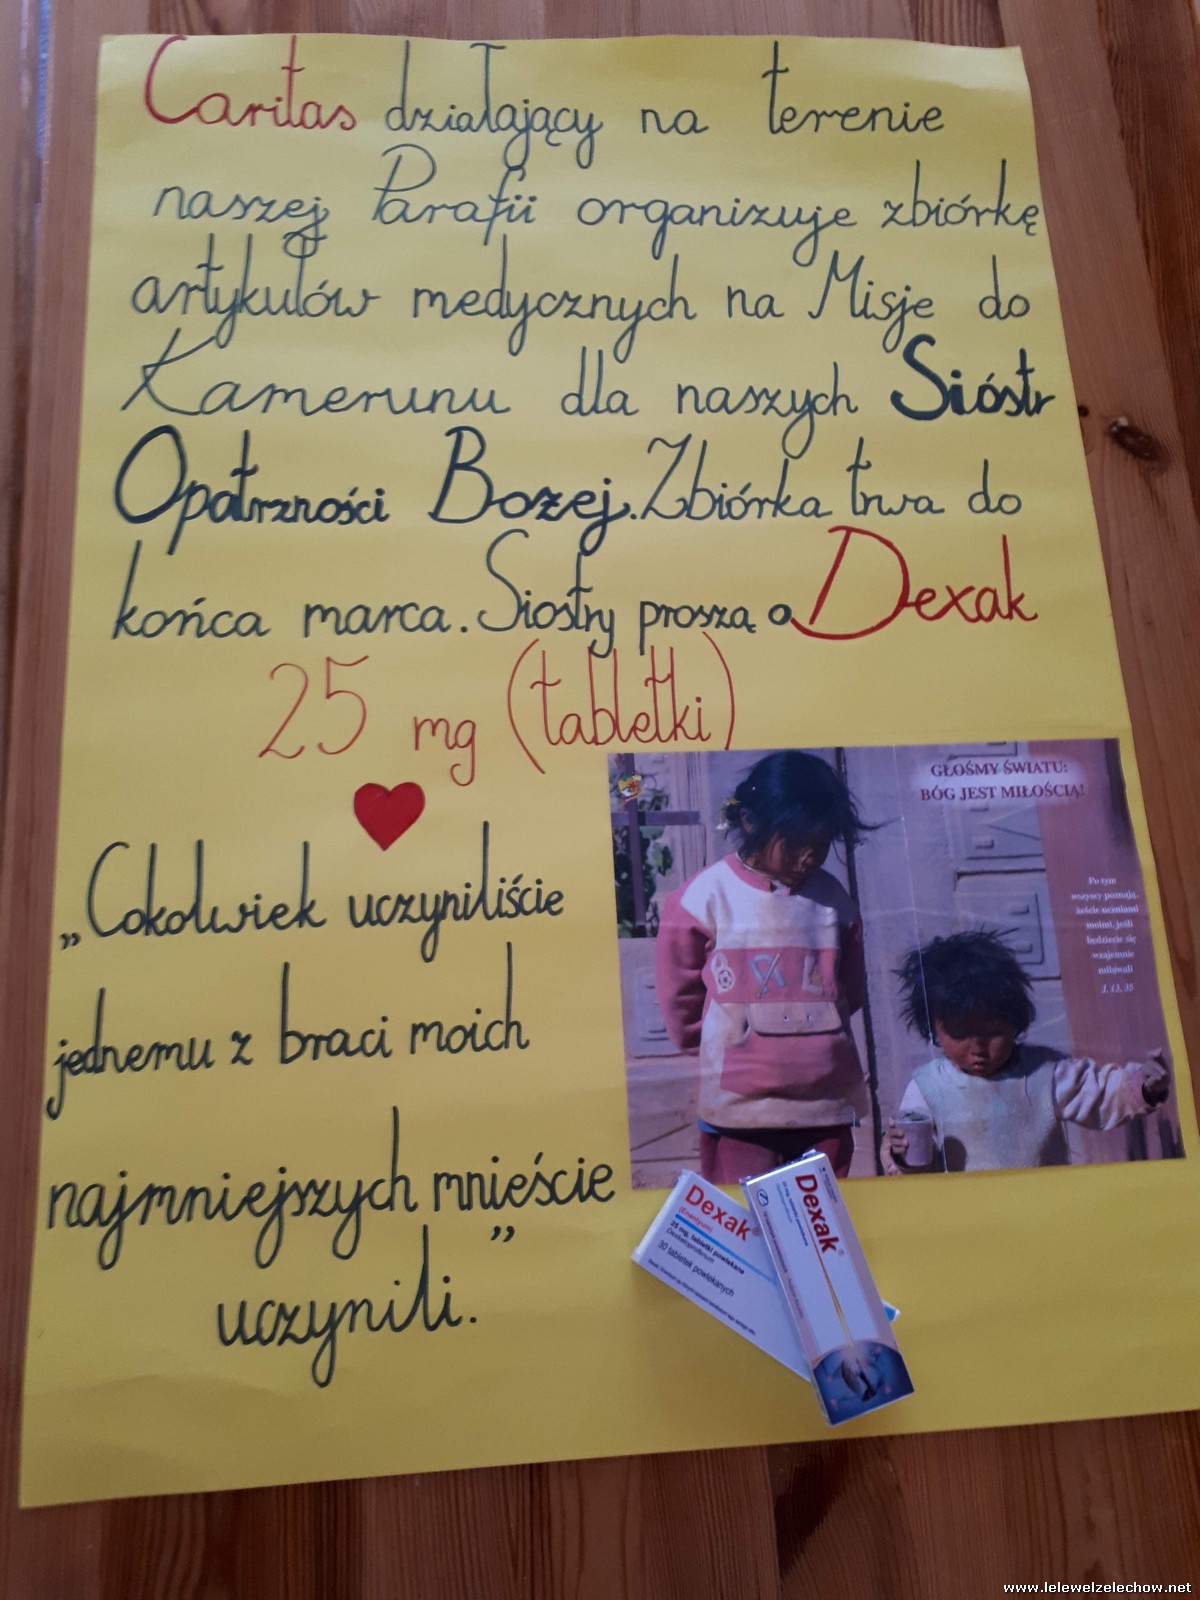 Caritas działający na terenie
naszej Parafii organizuje zbiórkę
artykułów medycznych na Misje do
Kamerunu dla naszych Sióstr
Opatrzności Bożej. Zbiórka trwa do
końca marca. Siostry proszą o Dexak
25 mg (tabletki)
„Cokolwiek uczyniliście
jednemu z braci moich
najmniejszych mnieście
uczynili.”
GŁOŚMY ŚWIATU:
BÓG JEST MIŁOŚCIĄ!
Po tym
wszyscy poznają,
żeście uczniami
moimi, jeśli
będziecie się
wzajemnie
miłowali
J. 13, 35
Dexak®
(Enantyum)
25 mg, tabletki powlekane
Dexketoprofenum
30 tabletek powlekanych
Dexak®
www.lelewelzelechow.net